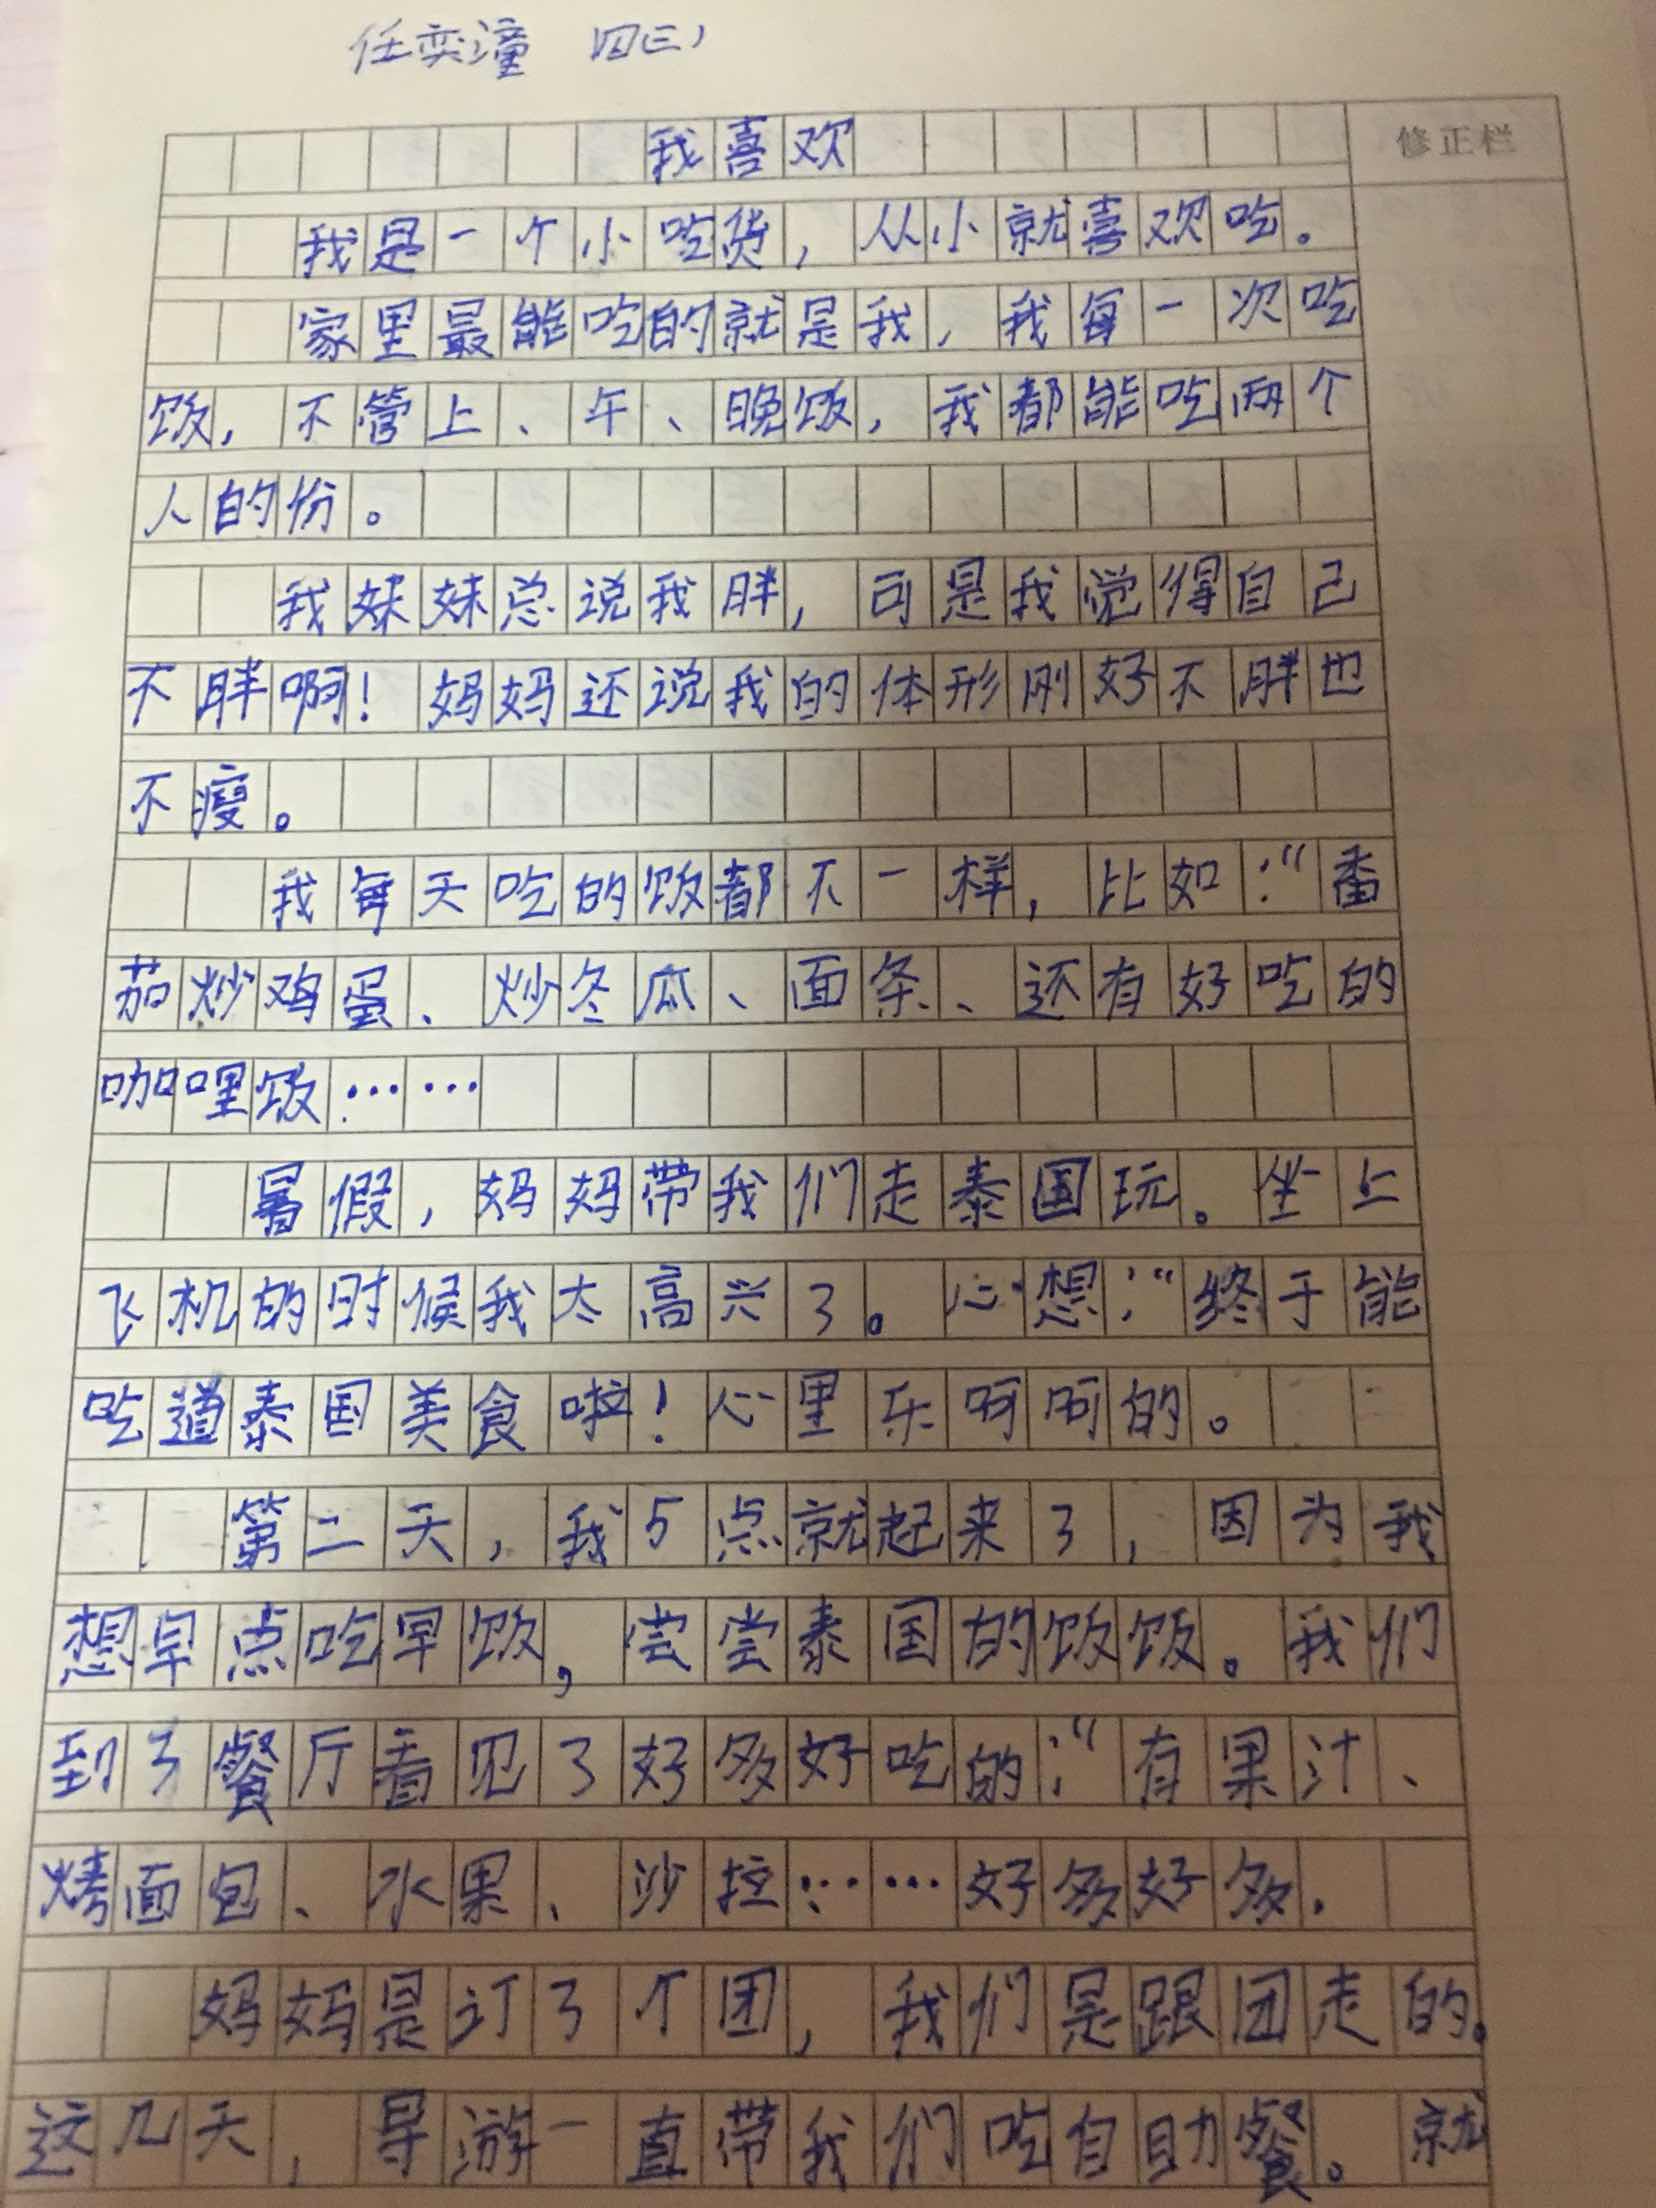 任奕潼 四三)
我喜欢
修正栏
我是一个小吃货，从小就喜欢吃。
家里最能吃的就是我，我每一次吃
饭，不管上、午、晚饭，我都能吃两个
人的份。
我妹妹总说我胖，可是我觉得自己
不胖啊！妈妈还说我的体形刚好不胖也
不瘦。
我每天吃的饭都不一样，比如：“番
茄炒鸡蛋、炒冬瓜、面条、还有好吃的
咖哩饭……
暑假，妈妈带我们走泰国玩。坐上
飞机的时候我太高兴了。心想：“终于能
吃道泰国美食啦！心里乐呵呵的。
第二天，我5点就起来了，因为我
想早点吃早饭，尝尝泰国的饭饭。我们
到了餐厅看见了好多好吃的：“有果汁、
烤面包、水果、沙拉……好多好多.
妈妈是订了个团，我们是跟团走的。
这几天，导游一直带我们吃自助餐。就